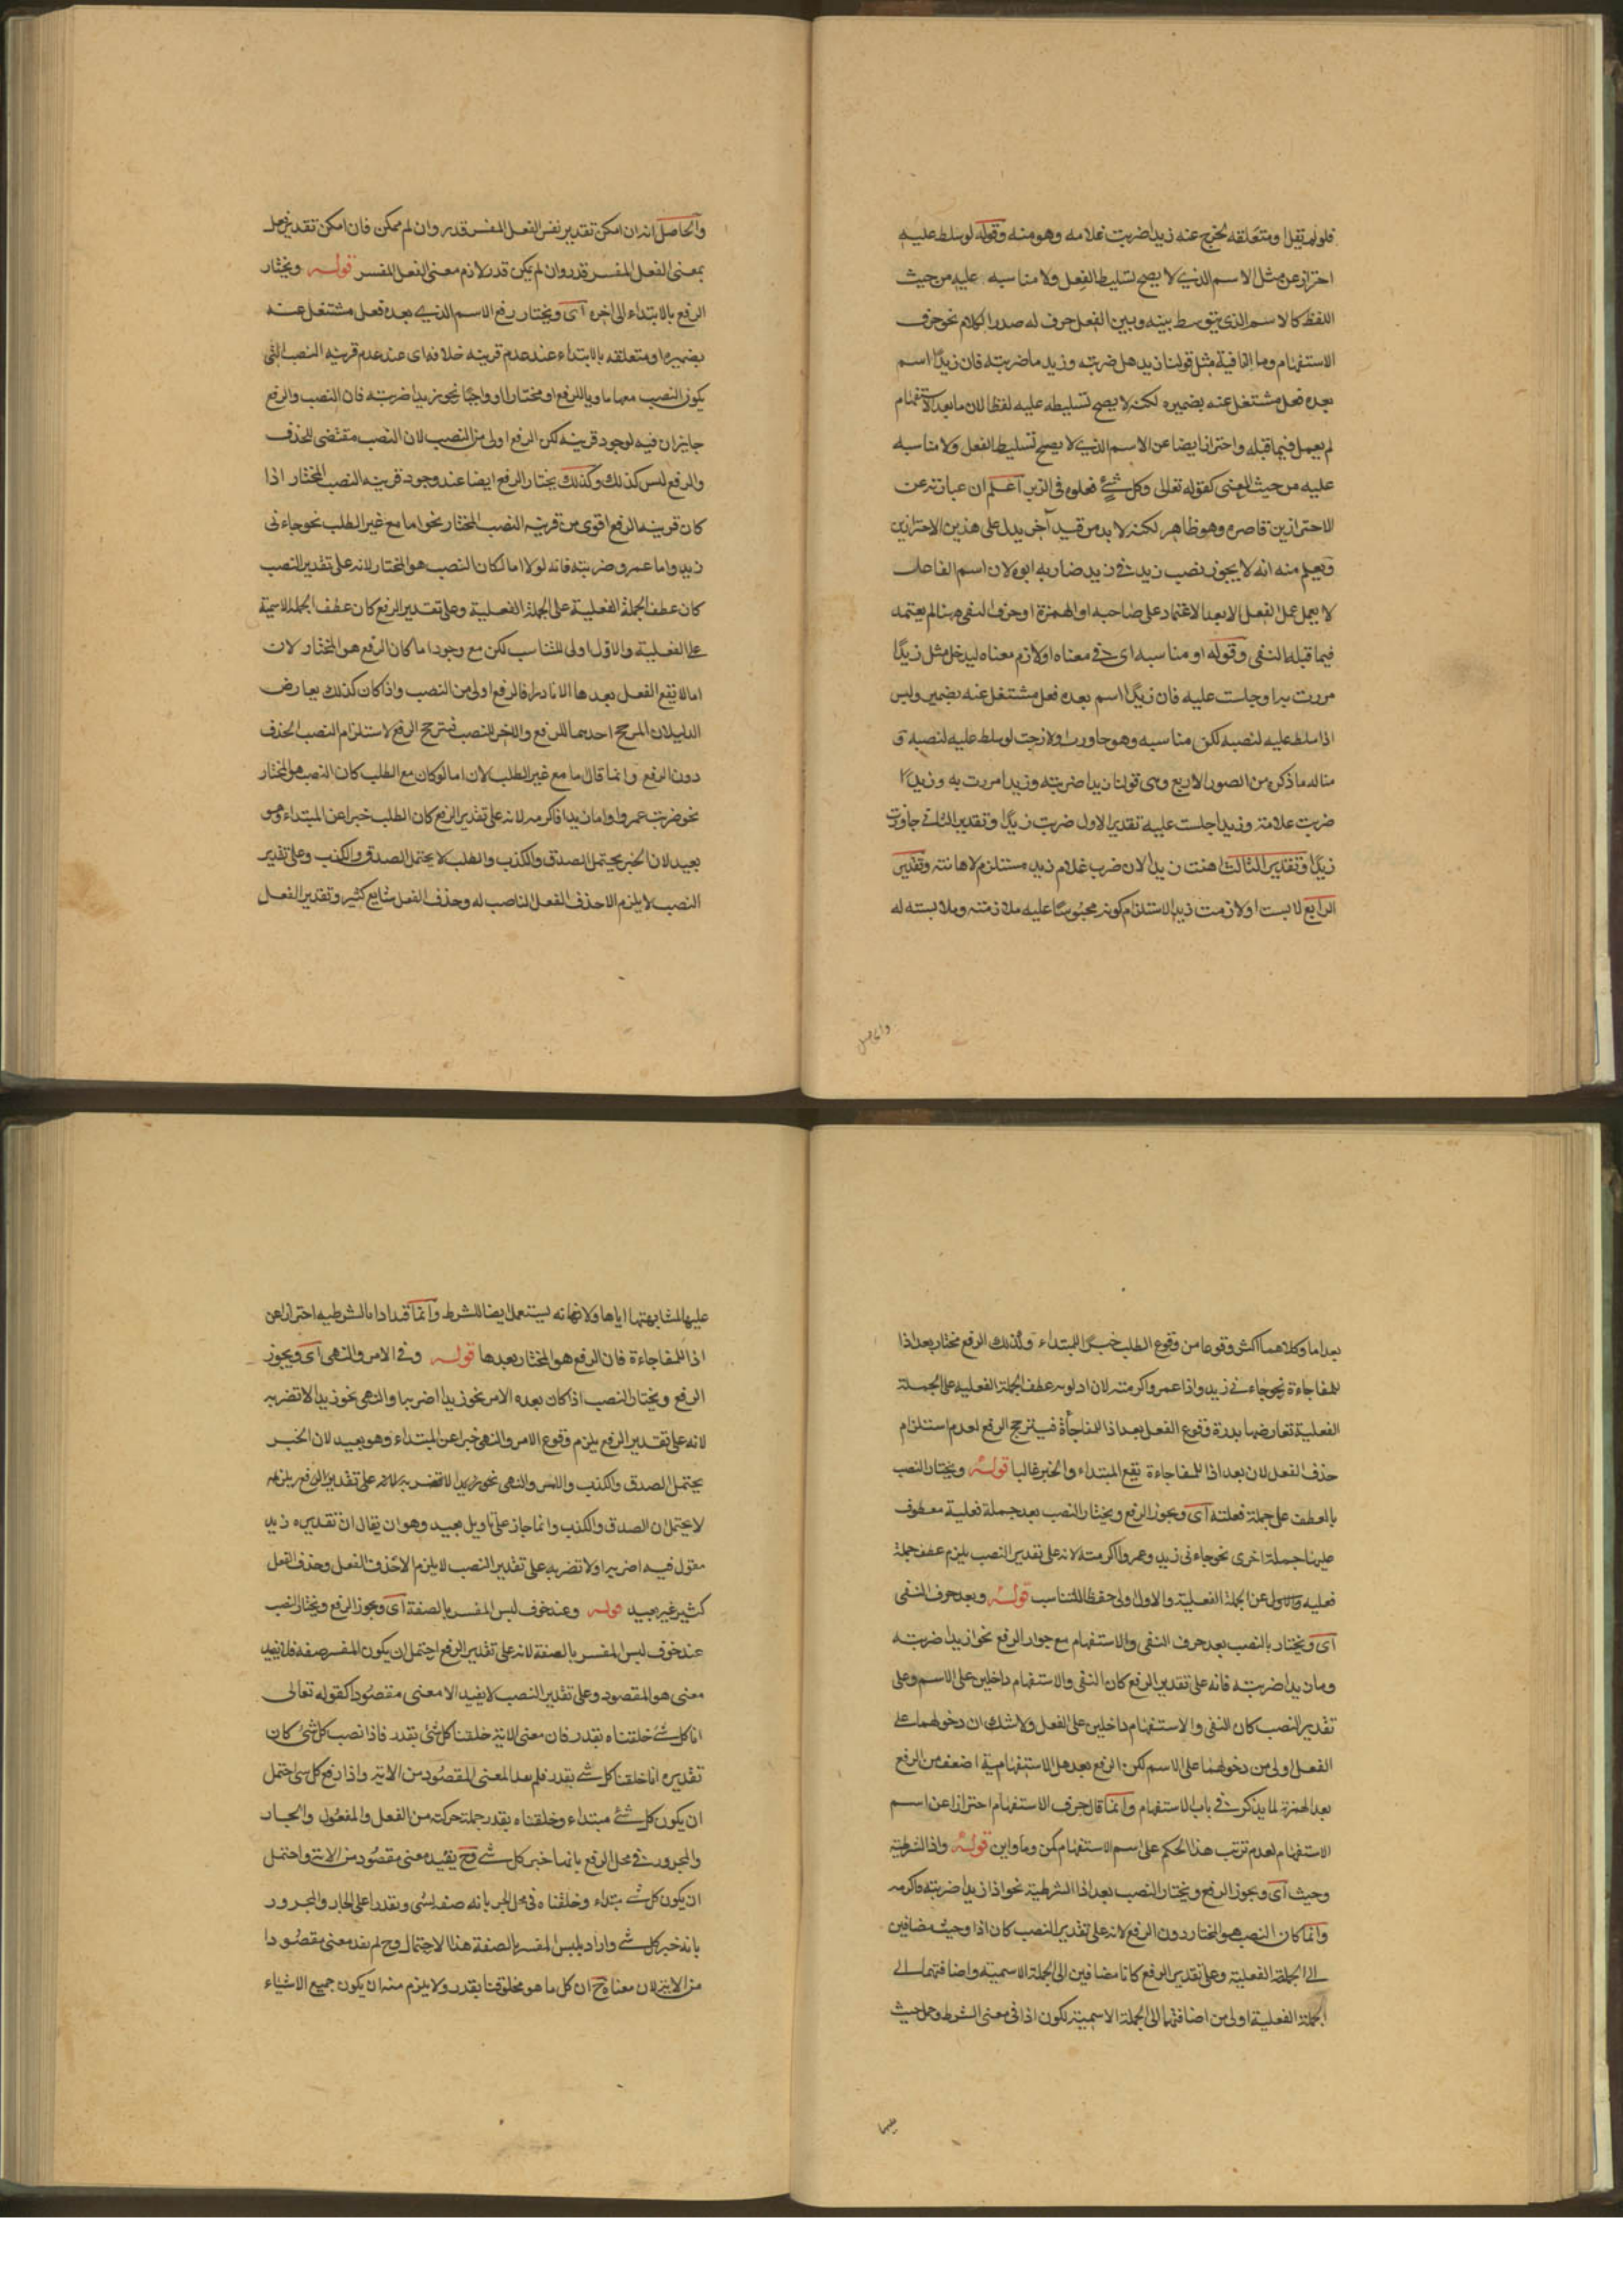 فلو لم يقل او متعلقه لخرج عنه زيدا ضربت غلامه وهو منه وقوله لو سلط عليه
احتراز عن مثل الاسم الذي لا يصح تسليط الفعل ولا مناسبه عليه من حيث
اللفظ كالاسم الذي يتوسط بينه وبين الفعل حرف له صدر الكلام نحو حرف
الاستفهام وما النافية مثل قولنا زيد هل ضربته وزيد ما ضربته فان زيدا اسم
بعده فعل مشتغل عنه بضميره لكنه لا يصح تسليطه عليه لفظا لان ما بعد الاستفهام
لم يعمل فيما قبله واحترازا ايضا عن الاسم الذي لا يصح تسليط الفعل ولا مناسبه
عليه من حيث المعنى كقوله تعالى وكل شيء فعلوه في الزبر اعلم ان عبارته عن
الاحترازين قاصره وهو ظاهر لكنه لا بد من قيد آخر يدل على هذين الاحترازين
ويعلم منه انه لا يجوز نصب زيد في زيد ضاربه ابوه لان اسم الفاعل
لا يعمل عمل الفعل الا بعد الاعتماد على صاحبه او الهمزة او حرف النفي وهنا لم يعتمد
فيما قبله النفي وقوله او مناسبه اى في معناه او لازم معناه ليدخل مثل زيدا
مررت به او جلست عليه فان زيدا اسم بعده فعل مشتغل عنه بضمير وليس
اذا سلط عليه لنصبه لكن مناسبه وهو جاوزت او لازمت لو سلط عليه لنصبه و
مثاله ما ذكره من الصور الاربع وهى قولنا زيدا ضربته وزيدا مررت به وزيدا
ضربت غلامه وزيدا جلست عليه تقدير الاول ضربت زيدا وتقدير الثاني جاوزت
زيدا وتقدير الثالث اهنت زيدا لان ضرب غلام زيد مستلزم لاهانته وتقدير
الرابع لابست او لازمت زيدا لاستلزام كونه محبوسا عليه ملازمته وملابسته له
والحاصل
والحاصل انه ان امكن تقدير نفس الفعل المفسر قدر وان لم يمكن فان امكن تقدير فعل
بمعنى الفعل المفسر قدر وان لم يكن قدر لازم معنى الفعل المفسر قوله ويختار
الرفع بالابتداء الى اخره اى ويختار رفع الاسم الذي بعده فعل مشتغل عنه
بضميره او متعلقه بالابتداء عند عدم قرينه خلافه اى عند عدم قرينه النصب التي
يكون النصب معها مساويا للرفع او مختارا او واجبا نحو زيدا ضربته فان النصب والرفع
جايزان فيه لوجود قرينه لكن الرفع اولى من النصب لان النصب مقتضى للحذف
والرفع ليس كذلك وكذلك يختار الرفع ايضا عند وجود قرينه النصب المختار اذا
كان قرينه الرفع اقوى من قرينه النصب المختار نحو اما مع غير الطلب نحو جاءنى
زيد واما عمرو ضربته فانه لولا اما لكان النصب هو المختار لانه على تقدير النصب
كان عطف الجملة الفعلية على الجملة الفعلية وعلى تقدير الرفع كان عطف الجملة الاسمية
على الفعلية والاول اولى للتناسب لكن مع وجود اما كان الرفع هو المختار لان
اما لا يقع الفعل بعدها الا نادرا فالرفع اولى من النصب واذا كان كذلك يعارض
الدليلان المرجح احدهما للرفع والاخر للنصب فترجح الرفع لاستلزام النصب الحذف
دون الرفع وانما قال اما مع غير الطلب لان اما لو كان مع الطلب كان النصب هو المختار
نحو ضربت عمروا واما زيدا فاكرمه لانه على تقدير الرفع كان الطلب خبرا عن المبتداء وهو
بعيد لان الخبر يحتمل الصدق والكذب والطلب لا يحتمل الصدق والكذب وعلى تقدير
النصب لا يلزم الا حذف الفعل الناصب له وحذف الفعل شايع كثير وتقدير الفعل
بعد اما وكلاهما اكثر وقوعا من وقوع الطلب خبرا للمبتداء وكذلك الرفع مختار بعد اذا
للمفاجاءة نحو جاءني زيد واذا عمرو اكرمته لان اولويه عطف الجملة الفعلية على الجملة
الفعلية تعارضها بدرة وقوع الفعل بعد اذا المفاجأة فيترجح الرفع لعدم استلزام
حذف الفعل لان بعد اذا للمفاجاءة يقع المبتداء والخبر غالبا قوله ويختار النصب
بالعطف على جملة فعلية اى ويجوز الرفع ويختار النصب بعد جملة فعلية معطوف
عليها جملة اخرى نحو جاءنى زيد وعمروا اكرمته لانه على تقدير النصب يلزم عطف جملة
فعليه على الجملة الفعلية والاول اولى حفظا للتناسب قوله وبعد حرف النفى
اى ويختار بالنصب بعد حرف النفى والاستفهام مع جواز الرفع نحو ازيدا ضربته
وما زيدا ضربته فانه على تقدير الرفع كان النفى والاستفهام داخلين على الاسم وعلى
تقدير النصب كان النفى والاستفهام داخلين على الفعل ولا شك ان دخولهما على
الفعل اولى من دخولهما على الاسم لكن الرفع بعد هل الاستفهامية اضعف من الرفع
بعد الهمزة لما يذكر في باب الاستفهام وانما قال حرف الاستفهام احترازا عن اسم
الاستفهام لعدم ترتب هذا الحكم على اسم الاستفهام كمن وما واين قوله واذا الشرطية
وحيث اى ويجوز الرفع ويختار النصب بعد اذا الشرطية نحو اذا زيدا ضربته فاكرمه
وانما كان النصب هو المختار دون الرفع لانه على تقدير النصب كان اذا وحيث مضافين
الى الجملة الفعلية وعلى تقدير الرفع كانا مضافين الى الجملة الاسمية واضافتهما الى
الجملة الفعلية اولى من اضافتهما الى الجملة الاسمية لكون اذا فى معنى الشرط وحمل حيث
عليها
عليها لمشابهتها اياها ولانها انه يستعمل ايضا للشرط وانما قيد اذا بالشرطيه احترازا عن
اذا للمفاجاءة فان الرفع هو المختار بعدها قوله وفى الامر والنهى اى ويجوز
الرفع ويختار النصب اذا كان بعده الامر نحو زيدا اضربه او النهى نحو زيدا لا تضربه
لانه على تقدير الرفع يلزم وقوع الامر والنهى خبرا عن المبتداء وهو بعيد لان الخبر
يحتمل الصدق والكذب والامر والنهى نحو زيدا لا تضربه لانه على تقدير الرفع يلزمه
لا يحتملان الصدق والكذب وانما جاز على تاويل بعيد وهو ان يقال ان تقديره زيد
مقول فيه اضربه او لا تضربه على تقدير النصب لا يلزم الا حذف الفعل وحذف الفعل
كثير غير بعيد قوله وعند خوف لبس المفسر بالصفة اى ويجوز الرفع ويختار النصب
عند خوف لبس المفسر بالصفة لانه على تقدير الرفع احتمل ان يكون المفسر صفه فلا يفيد
معنى هو المقصود وعلى تقدير النصب لا يفيد الا معنى مقصودا كقوله تعالى
انا كل شئ خلقناه بقدر فان معنى الاية خلقنا كل شئ بقدر فاذا نصب كل شئ كان
تقديره انا خلقنا كل شئ بقدر فلم يعد المعنى المقصود من الاية واذا رفع كل شى احتمل
ان يكون كل شئ مبتداء وخلقناه بقدر جملة مركبة من الفعل والمفعول والجار
والمجرور في محل الرفع بانها خبر كل شئ وح يفيد معنى مقصود من الاية واحتمل
ان يكون كل شئ مبتداء وخلقناه فى محل الجر بانه صفه لشى وبقدر اعلى الجار والمجرور
بانه خبر كل شئ واراد بلبس المفسر بالصفة هذا الاحتمال وح لم يفد معنى مقصودا
من الاية لان معناه ح ان كل ما هو مخلوقنا بقدر ولا يلزم منه ان يكون جميع الاشياء